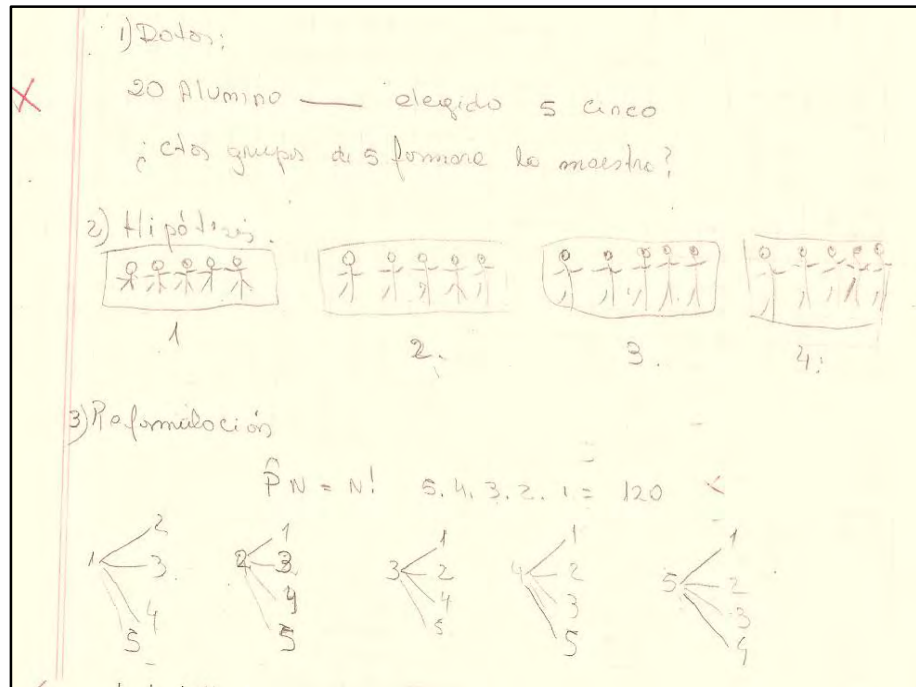 1) Datos:
20 Alumino — elegido 5 cinco
¿ctos grupos de 5 formara la maestra?
2) Hipótesis.
1 2. 3. 4.
3) Reformulación
P̂ N = N! 5.4.3.2.1 = 120
1 2 3 4 5
2 1 3 4 5
3 1 2 4 5
4 1 2 3 5
5 1 2 3 4